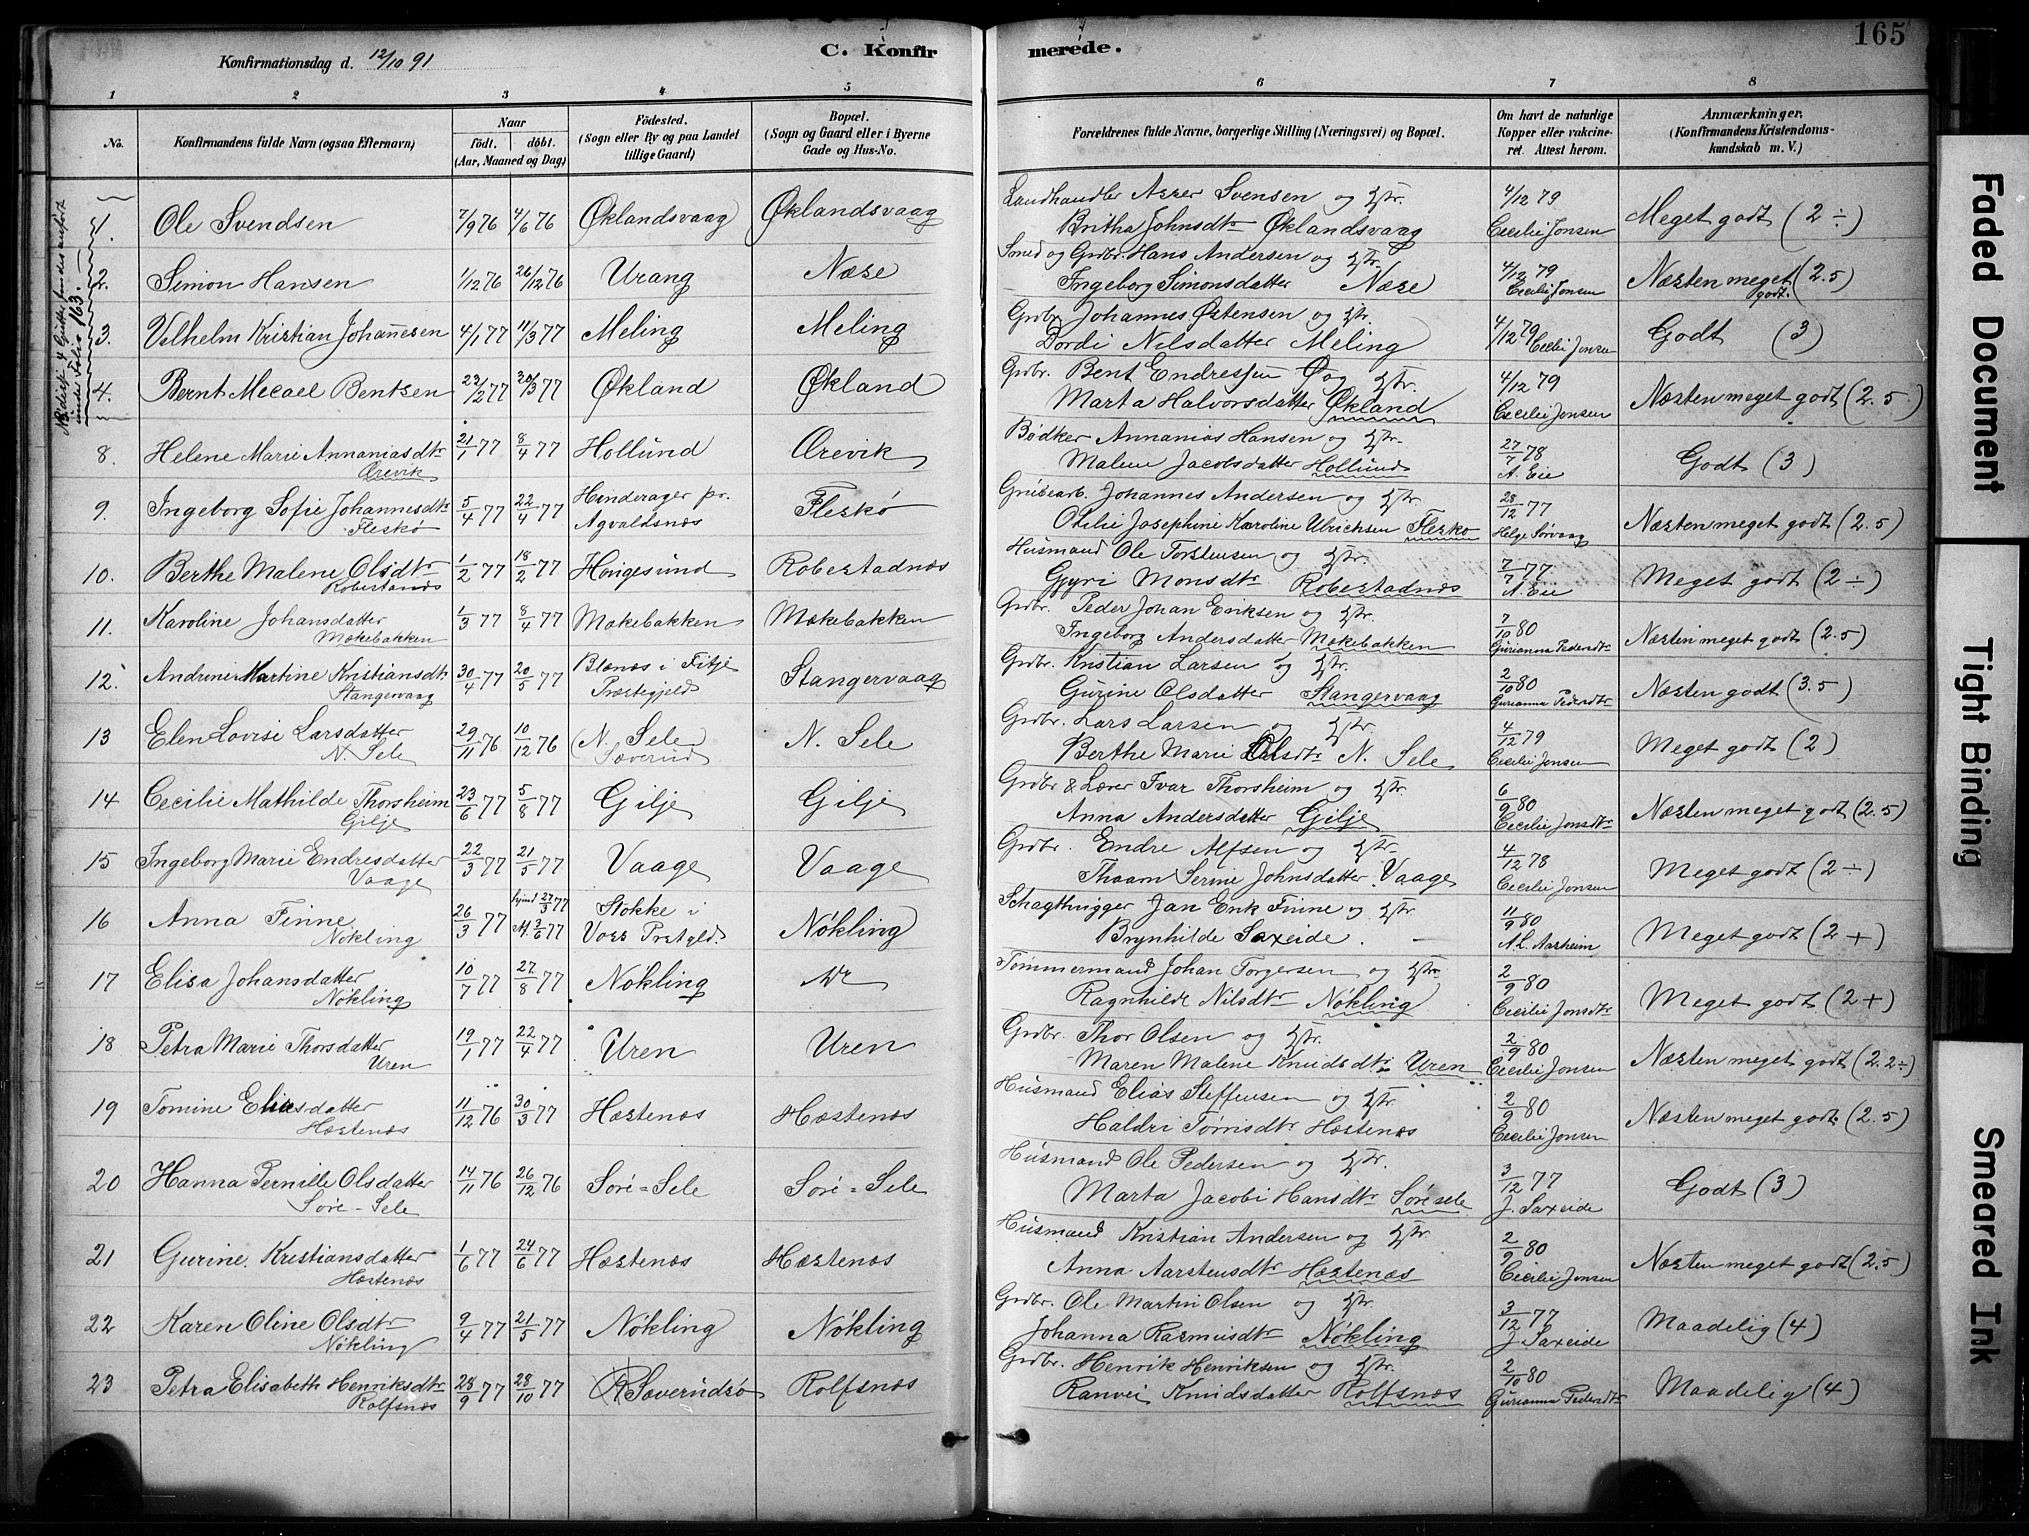 165
Konfirmationsdag d. 12/10 91
C. Konfirmerede.
1 2 3 4 5 6 7 8
No. Konfirmandens fulde Navn (ogsaa Efternavn)
Naar
født. døbt.
(Aar, Maaned og Dag)
Fødested.
(Sogn eller By og paa Landet tillige Gaard)
Bopæl.
(Sogn og Gaard eller i Byerne Gade og Hus-No.
Forældrenes fulde Navne, borgerlige Stilling (Næringsvei) og Bopæl.
Om havt de naturlige Kopper eller vakcineret. Attest herom.
Anmærkninger.
(Konfirmandens Kristendomskundskab m. V.)
under Folio 163.
1. Ole Svendsen 7/9 76 4/6 76 Øklandsvaag Øklandsvaag Landhandler Asser Svensen og Hstr. 4/12 79 Meget godt (2÷)
Britha Johnsdtr Øklandsvaag Cecilie Jonsen
2. Simon Hansen 1/12 76 26/12 76 Urang Næse Smed og Grdbr. Hans Andersen og Hstr. 4/12 79 Næsten meget godt. (2.5)
Ingeborg Simonsdatter Næse Cecilie Jonsen
3. Vilhelm Kristian Johannesen 4/1 77 11/3 77 Meling Meling Grdbr. Johannes Østensen og Hstr. 4/12 79 Godt (3)
Dordi Nilsdatter Meling Cecilie Jonsen
4. Bernt Mecael Bentsen 22/2 77 30/3 77 Økland Økland Grdbr. Bent Endressen og Hstr. 4/12 79 Næsten meget godt (2.5)
Marta Halvorsdatter Økland Cecilie Jonsen
8. Helene Marie Annaniasdtr Orevik 21/1 77 8/4 77 Hollund Orevik Bødker Annanias Hansen og Hstr. 27/7 78 Godt (3)
Malene Jacobsdatter Hollund A. Eie
9. Ingeborg Sofie Johannesdtr Fleskø 5/4 77 22/4 77 Hinderager pr. Agvaldsnæs Fleskø Grubearb. Johannes Andersen og Hstr. 28/12 77 Næsten meget godt (2.5)
Otilie Josephine Karoline Ulrichsen Flesko Helge Sørvaag
10. Berthe Malene Olsdtr Robestadnæs 1/2 77 18/2 77 Haugesund Robestadnæs Husmand Ole Torstensen og Hstr. 7/7 77 Meget godt (2÷)
Gyri Monsdtr Robestadnæs A. Eie
11. Karoline Johansdatter Mækebakken 1/3 77 8/4 77 Mækebakken Mækebakken Grdbr. Peder Johan Eriksen og Hstr. 7/10 80 Næsten meget godt (2.5)
Ingeborg Andersdatter Mækebakken Gurianna Pedersdtr
12. Andrine Martine Kristiansdtr Stangervaag 30/4 77 20/5 77 Blænes i Fitje Præstegjeld Stangervaag Grdbr. Kristian Larsen og Hstr. 2/10 80 Næsten godt (3.5)
Gurine Olsdatter Stangervaag Gurianna Pedersdtr
13 Elen Lovise Larsdatter N. Sele 29/11 76 10/12 76 (N. Sele) Sæverud N. Sele Grdbr. Lars Larsen og Hstr. 4/12 79 Meget godt (2)
Berthe Marie Olsdtr N. Sele Cecilie Jonsen
14 Cecilie Mathilde Thorsheim Gilje 23/6 77 5/8 77 Gilje Gilje Grdbr & Lærer Ivar Thorsheim og Hstr. 6/9 80 Næsten meget godt (2.5)
Anna Andersdatter Gilje Cecilie Jonsdtr
15 Ingeborg Marie Endresdatter Vaage 22/3 77 21/5 77 Vaage Vaage Grdbr. Endre Alfsen og Hstr. 4/12 78 Meget godt (2÷)
Serine Johnsdatter Vaage Cecilie Jonsen
16 Anna Finne Nøkling 26/3 77 27/3 77 3/6 77 Stokke i Voss Prstgld. Nøkling Jan Erik Finne og Hstr. 11/9 80 Meget godt (2+)
Brynhilde Saxeide. A. L. Aarheim
17 Elisa Johansdatter Nøkling 10/7 77 27/8 77 Nøkling Tømmermand Johan Torgersen og Hstr. 2/9 80 Meget godt (2+)
Ragnhilde Nilsdtr Nøkling Cecilie Jonsdtr
18 Petra Marie Thorsdatter Uren 19/1 77 22/4 77 Uren Uren Grdbr. Thor Olsen og Hstr. 2/9 80 Næsten meget godt (2.2÷)
Maren Malene Knudsdtr Uren Cecilie Jonsen
19 Tomine Eliasdatter Hæstenæs 11/12 76 30/3 77 Hæstenæs Hæstenæs Husmand Elias Steffensen og Hstr. 2/9 80 Næsten meget godt (2.5)
Haldri Tørrisdtr Hæstenæs Cecilie Jonsen
20 Hanna Pernille Olsdatter Søre-Sele 14/11 76 26/12 76 Søre-Sele Søre-Sele Husmand Ole Pedersen og Hstr. 3/12 77 Godt (3)
Marta Jacobi Hansdtr Søre sele J. Saxeide
21 Gurine Kristiansdatter Hæstenæs 1/6 77 24/6 77 Hæstenæs Hæstenæs Husmand Kristian Andersen og Hstr. 2/9 80 Næsten meget godt (2.5)
Anna Aarstensdtr Hæstenæs Cecilie Jonsen
22 Karen Oline Olsdtr Nøkling 9/4 77 21/5 77 Nøkling Nøkling Grdbr. Ole Martin Olsen og Hstr. 3/12 77 Maadelig (4)
Johanna Rasmusdtr Nøkling J. Saxeide
23 Petra Elisabeth Henriksdtr Rolfsnæs 28/9 77 28/10 77 Soverudsø Rolfsnæs Grdbr. Henrik Henriksen og Hstr. 2/10 80 Maadelig (4)
Ranvei Knudsdatter Rolfsnæs Gurianna Pedersdtr
Faded Document
Tight Binding
Smeared Ink